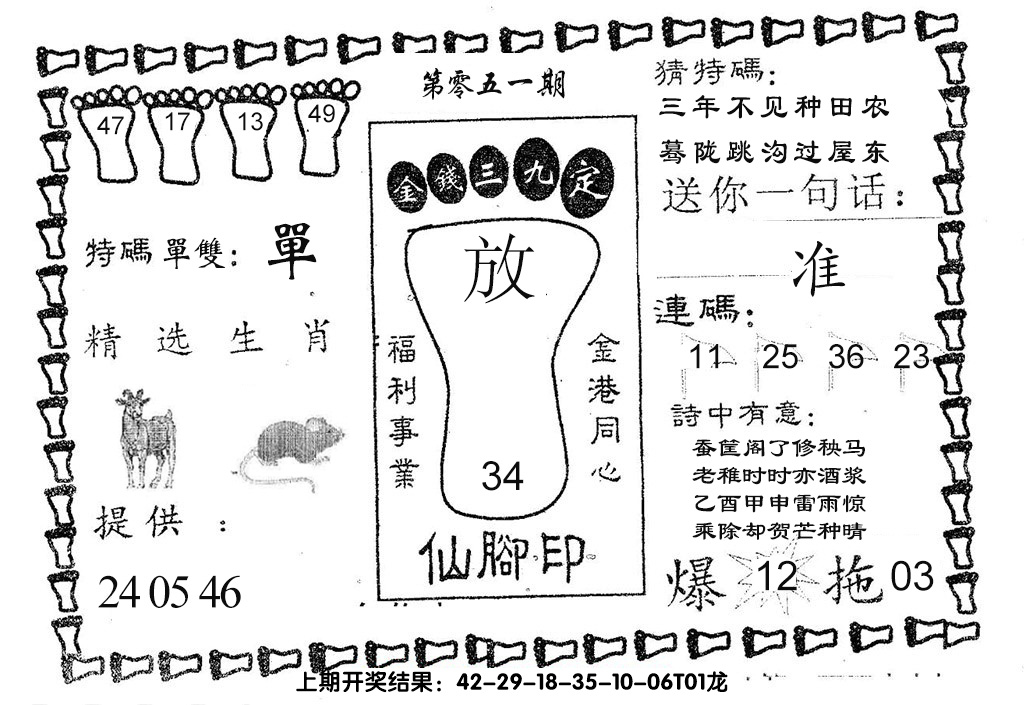 第零五一期
47 17 13 49
特碼單雙: 單
精选生肖
提供:
24 05 46
金錢三九定
放
福利事業
金港同心
34
仙腳印
猜特碼:
三年不见种田农
蓦陇跳沟过屋东
送你一句话:
准
連碼:
11 25 36 23
詩中有意:
蚕筐阁了修秧马
老稚时时亦酒浆
乙酉甲申雷雨惊
乘除却贺芒种晴
爆 12 拖 03
上期开奖结果：42-29-18-35-10-06T01龙